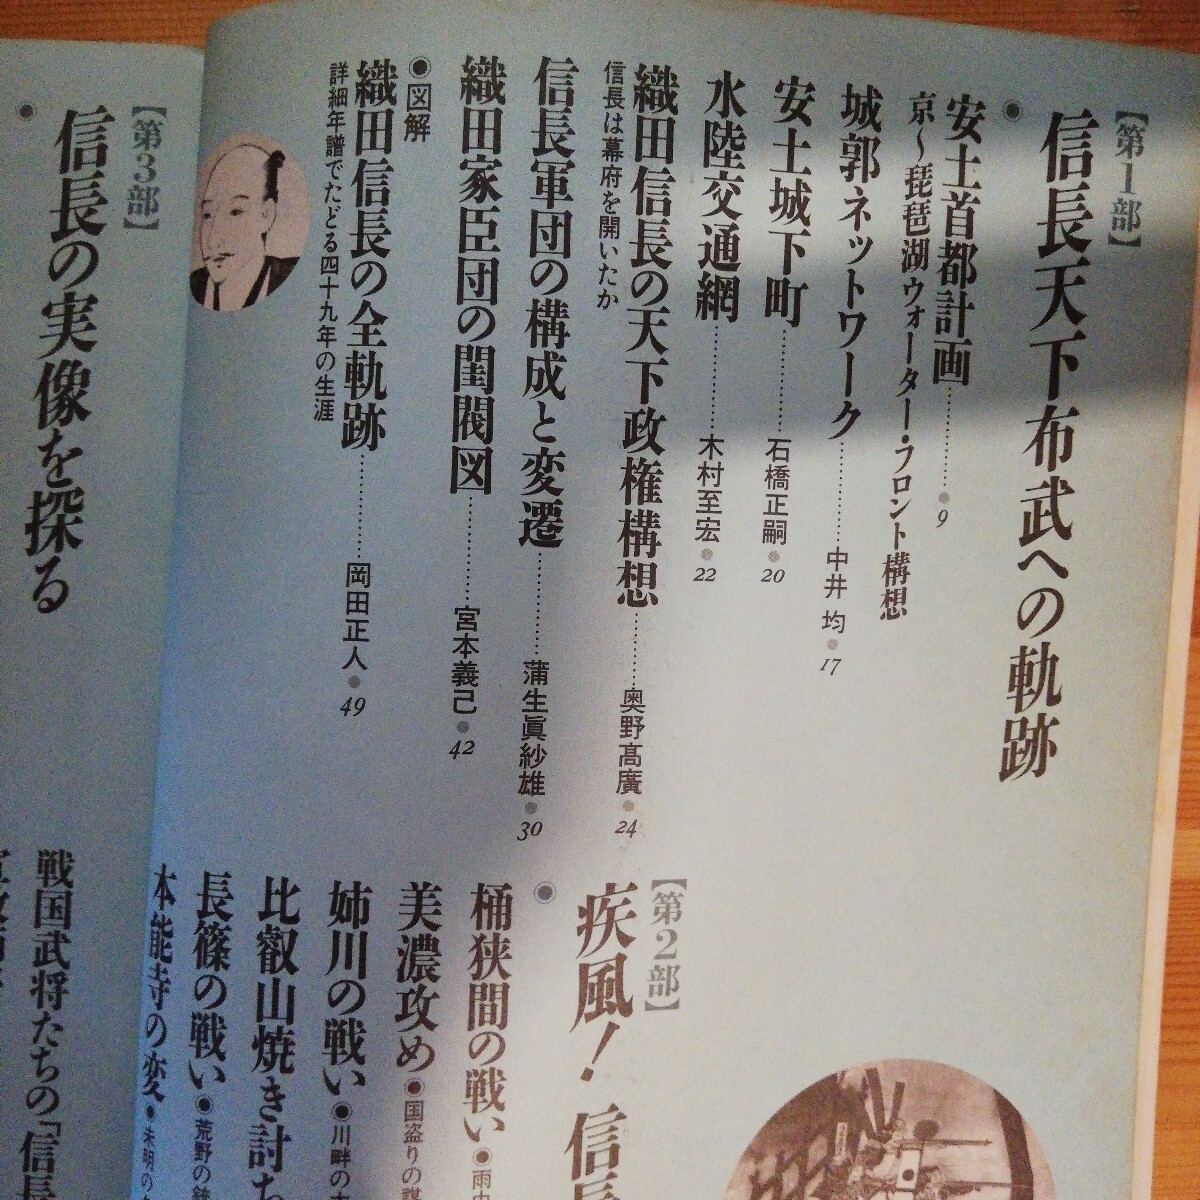 【第1部】
信長天下布武への軌跡
安土首都計画…………9
京〜琵琶湖ウォーター・フロント構想
城郭ネットワーク…………中井 均 17
安土城下町…………石橋正嗣 20
水陸交通網…………木村至宏 22
織田信長の天下政権構想…………奥野高廣 24
信長は幕府を開いたか
信長軍団の構成と変遷…………蒲生眞紗雄 30
織田家臣団の閨閥図…………宮本義己 42
◉図解
織田信長の全軌跡…………岡田正人 49
詳細年譜でたどる四十九年の生涯
【第2部】
疾風！信長
桶狭間の戦い◉雨中
美濃攻め◉国盗りの謀
姉川の戦い◉川畔の
比叡山焼き討ち
長篠の戦い◉荒野の銃
本能寺の変◉未明の
【第3部】
信長の実像を探る
戦国武将たちの「信長